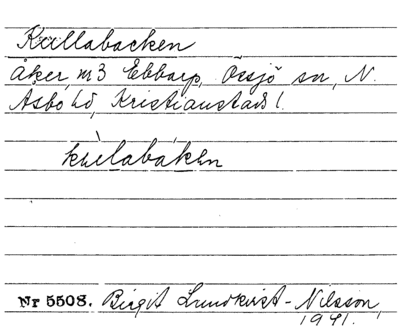 Kullabacken
åker, m3 Ebbarp, Össjö sn, N.
Åsbo hd, Kristianstads l.
Nr 5508. Birgit Lundkvist-Nilsson,
1941.